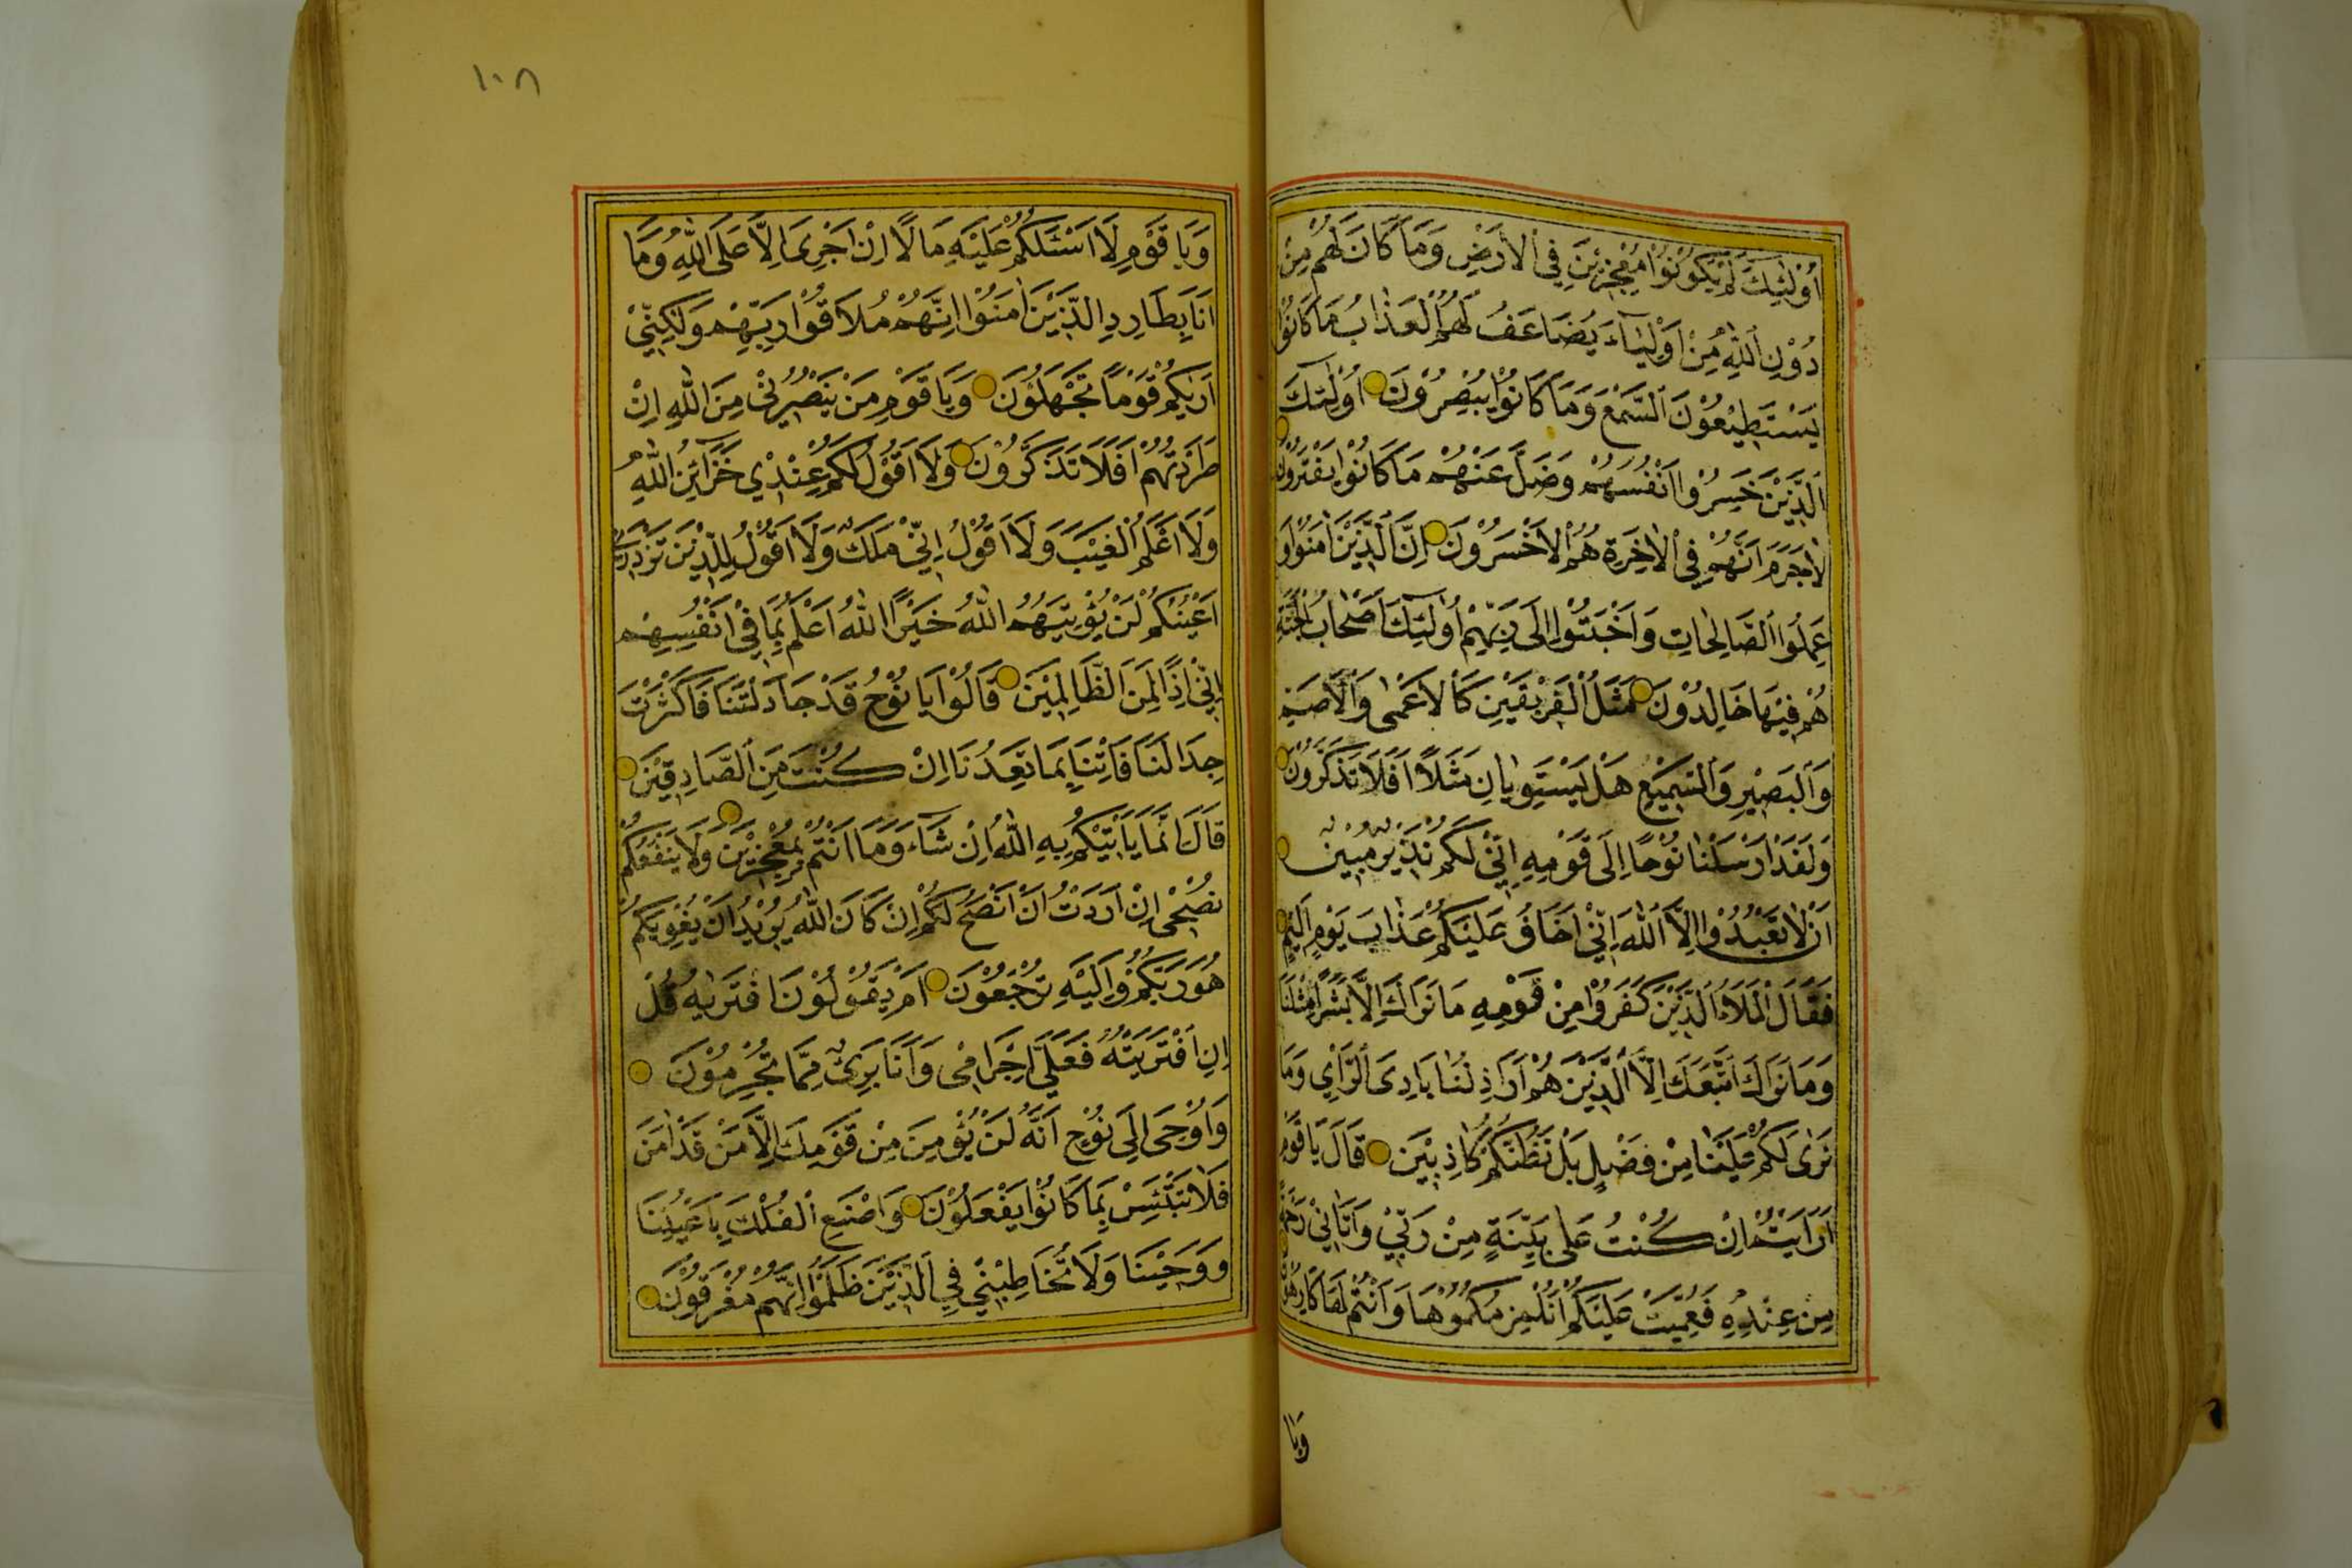 اُولٰئِكَ لَمْ يَكُونُوا مُعْجِزِينَ فِي الْاَرْضِ وَمَا كَانَ لَهُمْ مِنْ
دُوْنِ اللّٰهِ مِنْ اَوْلِيَآءَ يُضَاعَفُ لَهُمُ الْعَذَابُ مَا كَانُوْا
يَسْتَطِيْعُوْنَ السَّمْعَ وَمَا كَانُوْا يُبْصِرُوْنَ اُولٰئِكَ
الَّذِيْنَ خَسِرُوْا اَنْفُسَهُمْ وَضَلَّ عَنْهُمْ مَا كَانُوْا يَفْتَرُوْنَ
لَاجَرَمَ اَنَّهُمْ فِي الْاٰخِرَةِ هُمُ الْاَخْسَرُوْنَ اِنَّ الَّذِيْنَ اٰمَنُوْا وَ
عَمِلُوا الصَّالِحَاتِ وَاَخْبَتُوْا اِلٰى رَبِّهِمْ اُولٰئِكَ اَصْحَابُ الْجَنَّةِ
هُمْ فِيْهَا خَالِدُوْنَ مَثَلُ الْفَرِيْقَيْنِ كَالْاَعْمٰى وَالْاَصَمِّ
وَالْبَصِيْرِ وَالسَّمِيْعِ هَلْ يَسْتَوِيَانِ مَثَلًا اَفَلَا تَذَكَّرُوْنَ
وَلَقَدْ اَرْسَلْنَا نُوْحًا اِلٰى قَوْمِهِ اِنِّيْ لَكُمْ نَذِيْرٌ مُبِيْنٌ
اَنْ لَا تَعْبُدُوْا اِلَّا اللّٰهَ اِنِّيْ اَخَافُ عَلَيْكُمْ عَذَابَ يَوْمٍ اَلِيْمٍ
فَقَالَ الْمَلَاُ الَّذِيْنَ كَفَرُوْا مِنْ قَوْمِهِ مَا نَرَاكَ اِلَّا بَشَرًا مِثْلَنَا
وَمَا نَرَاكَ اتَّبَعَكَ اِلَّا الَّذِيْنَ هُمْ اَرَاذِلُنَا بَادِىَ الرَّاْيِ وَمَا
نَرٰى لَكُمْ عَلَيْنَا مِنْ فَضْلٍ بَلْ نَظُنُّكُمْ كَاذِبِيْنَ قَالَ يَا قَوْمِ
اَرَاَيْتُمْ اِنْ كُنْتُ عَلٰى بَيِّنَةٍ مِنْ رَبِّيْ وَاٰتَانِيْ رَحْمَةً
مِنْ عِنْدِهِ فَعُمِّيَتْ عَلَيْكُمْ اَنُلْزِمُكُمُوْهَا وَاَنْتُمْ لَهَا كَارِهُوْنَ
وَيَا
١٠٨
وَيَا قَوْمِ لَا اَسْئَلُكُمْ عَلَيْهِ مَالًا اِنْ اَجْرِىَ اِلَّا عَلَى اللّٰهِ وَمَا
اَنَا بِطَارِدِ الَّذِيْنَ اٰمَنُوْا اِنَّهُمْ مُلَاقُوْا رَبِّهِمْ وَلٰكِنِّيْ
اَرٰيكُمْ قَوْمًا تَجْهَلُوْنَ وَيَا قَوْمِ مَنْ يَنْصُرُنِيْ مِنَ اللّٰهِ اِنْ
طَرَدْتُهُمْ اَفَلَا تَذَكَّرُوْنَ وَلَا اَقُوْلُ لَكُمْ عِنْدِيْ خَزَآئِنُ اللّٰهِ
وَلَا اَعْلَمُ الْغَيْبَ وَلَا اَقُوْلُ اِنِّيْ مَلَكٌ وَلَا اَقُوْلُ لِلَّذِيْنَ تَزْدَرِىْ
اَعْيُنُكُمْ لَنْ يُؤْتِيَهُمُ اللّٰهُ خَيْرًا اللّٰهُ اَعْلَمُ بِمَا فِيْ اَنْفُسِهِمْ
اِنِّيْ اِذًا لَمِنَ الظَّالِمِيْنَ قَالُوْا يَا نُوْحُ قَدْ جَادَلْتَنَا فَاَكْثَرْتَ
جِدَالَنَا فَاْتِنَا بِمَا تَعِدُنَا اِنْ كُنْتَ مِنَ الصَّادِقِيْنَ
قَالَ اِنَّمَا يَاْتِيْكُمْ بِهِ اللّٰهُ اِنْ شَآءَ وَمَا اَنْتُمْ بِمُعْجِزِيْنَ وَلَا يَنْفَعُكُمْ
نُصْحِيْ اِنْ اَرَدْتُ اَنْ اَنْصَحَ لَكُمْ اِنْ كَانَ اللّٰهُ يُرِيْدُ اَنْ يُغْوِيَكُمْ
هُوَ رَبُّكُمْ وَاِلَيْهِ تُرْجَعُوْنَ اَمْ يَقُوْلُوْنَ افْتَرٰيهُ قُلْ
اِنِ افْتَرَيْتُهُ فَعَلَيَّ اِجْرَامِىْ وَاَنَا بَرِئٌ مِمَّا تُجْرِمُوْنَ
وَاُوْحِىَ اِلٰى نُوْحٍ اَنَّهُ لَنْ يُؤْمِنَ مِنْ قَوْمِكَ اِلَّا مَنْ قَدْ اٰمَنَ
فَلَا تَبْتَئِسْ بِمَا كَانُوْا يَفْعَلُوْنَ وَاصْنَعِ الْفُلْكَ بِاَعْيُنِنَا
وَوَحْيِنَا وَلَا تُخَاطِبْنِيْ فِي الَّذِيْنَ ظَلَمُوْا اِنَّهُمْ مُغْرَقُوْنَ